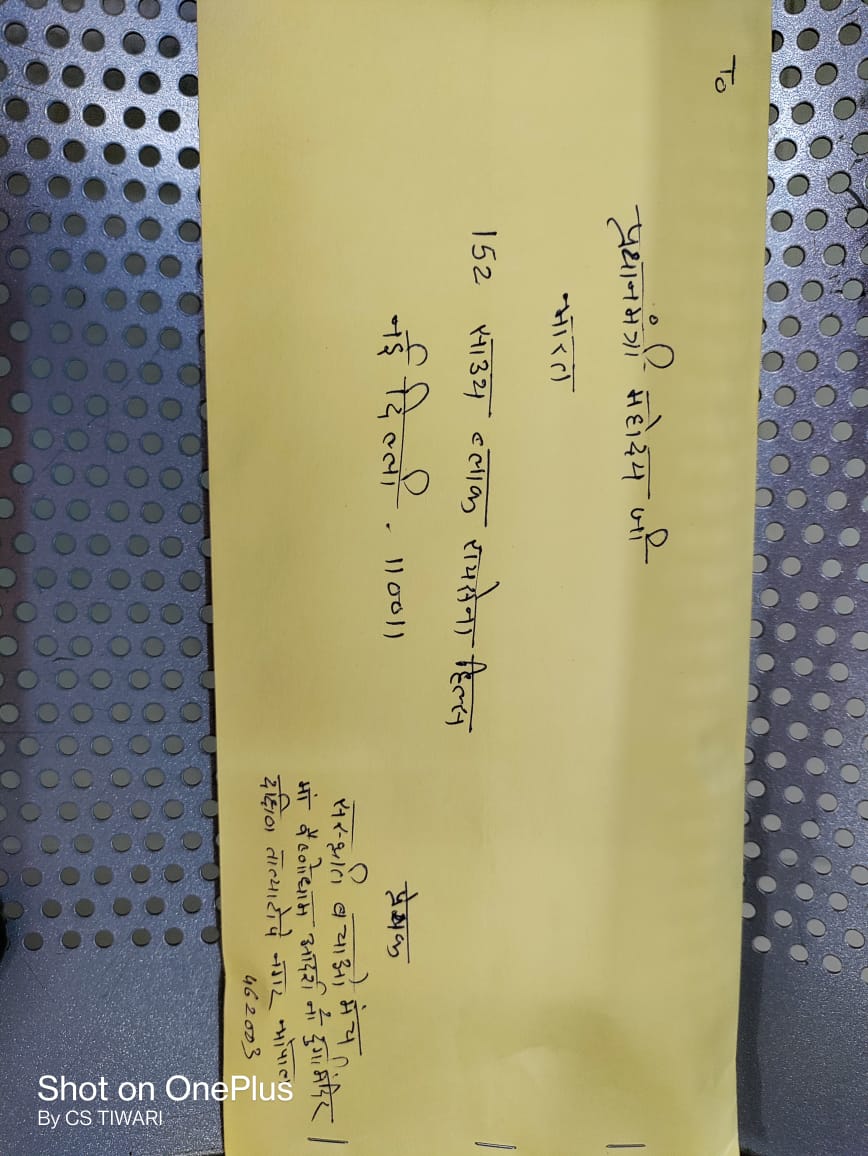 To
प्रधानमंत्री महोदय जी
भारत
152 साउथ ब्लाक रायसेना हिल्स
नई दिल्ली . 110011
प्रेषक
संस्कृति बचाओ मंच
माँ वैष्णोधाम आदर्श नौ दुर्गा मंदिर
तात्याटोपे नगर भोपाल
462003
Shot on OnePlus
By CS TIWARI